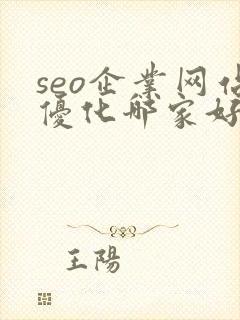 seo企業网站
優化哪家好
王陽